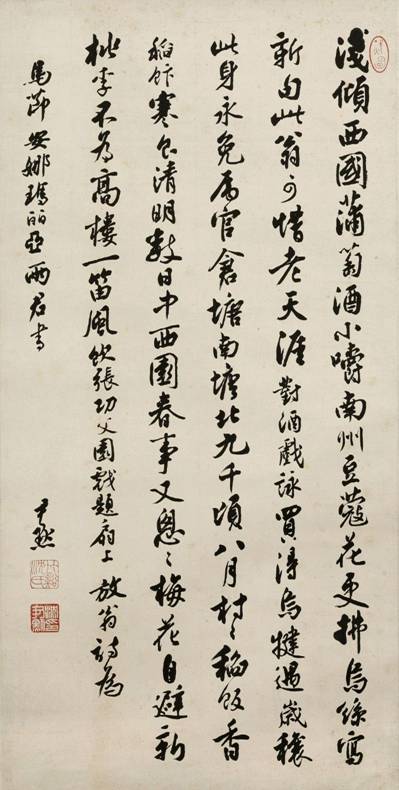 淺傾西國蒲萄酒小嚼南州豆蔻花更拂烏絲寫
新句此翁可惜老天涯對酒戲詠買得烏犍遇歲穰
此身永免屬官倉塘南塘北九千頃八月村〻稻飯香
稻飯寒食清明數日中西園春事又怱〻梅花自避新
桃李不為高樓一笛風飲張功父園戲題扇上放翁詩為
馬節安娜瑪亞兩君書
尹默